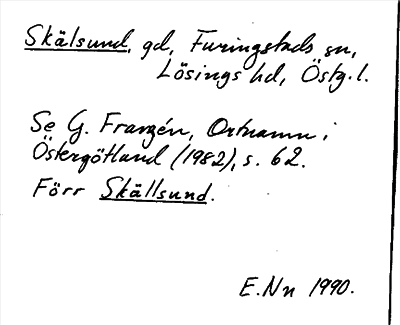 Skälsund, gd, Furingstads sn,
Lösings hd, Östg. l.
Se G. Franzén, Ortnamn i
Östergötland (1982), s. 62.
Förr Skällsund.
E. Nn 1990.